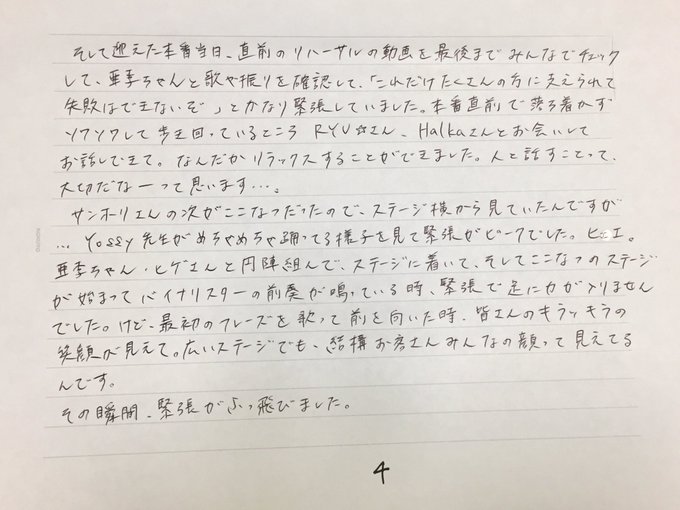 そして迎えた本番当日、直前のリハーサルの動画を最後までみんなでチェック
して、亜季ちゃんと歌や振りを確認して、「これだけたくさんの方に支えられて
失敗はできないぞ」とかなり緊張していました。本番直前で落ち着かず
ソワソワして歩き回っているところ RYU☆さん、Halkaさんとお会いして
お話しできて。なんだかリラックスすることができました。人と話すことって、
大切だなーって思います…。
サンホリさんの次がここなつだったので、ステージ横から見ていたんですが
… Yossy先生がめちゃめちゃ踊ってる様子を見て緊張がピークでした。ヒェエ。
亜季ちゃん・ヒゲさんと円陣組んで、ステージに着いて、そしてここなつのステージ
が始まってバイナリスターの前奏が鳴っている時、緊張で足に力が入りません
でした。けど、最初のフレーズを歌って前を向いた時、皆さんのキラッキラの
笑顔が見えて。広いステージでも、結構お客さんみんなの顔って見えてる
んです。
その瞬間、緊張がふっ飛びました。
4